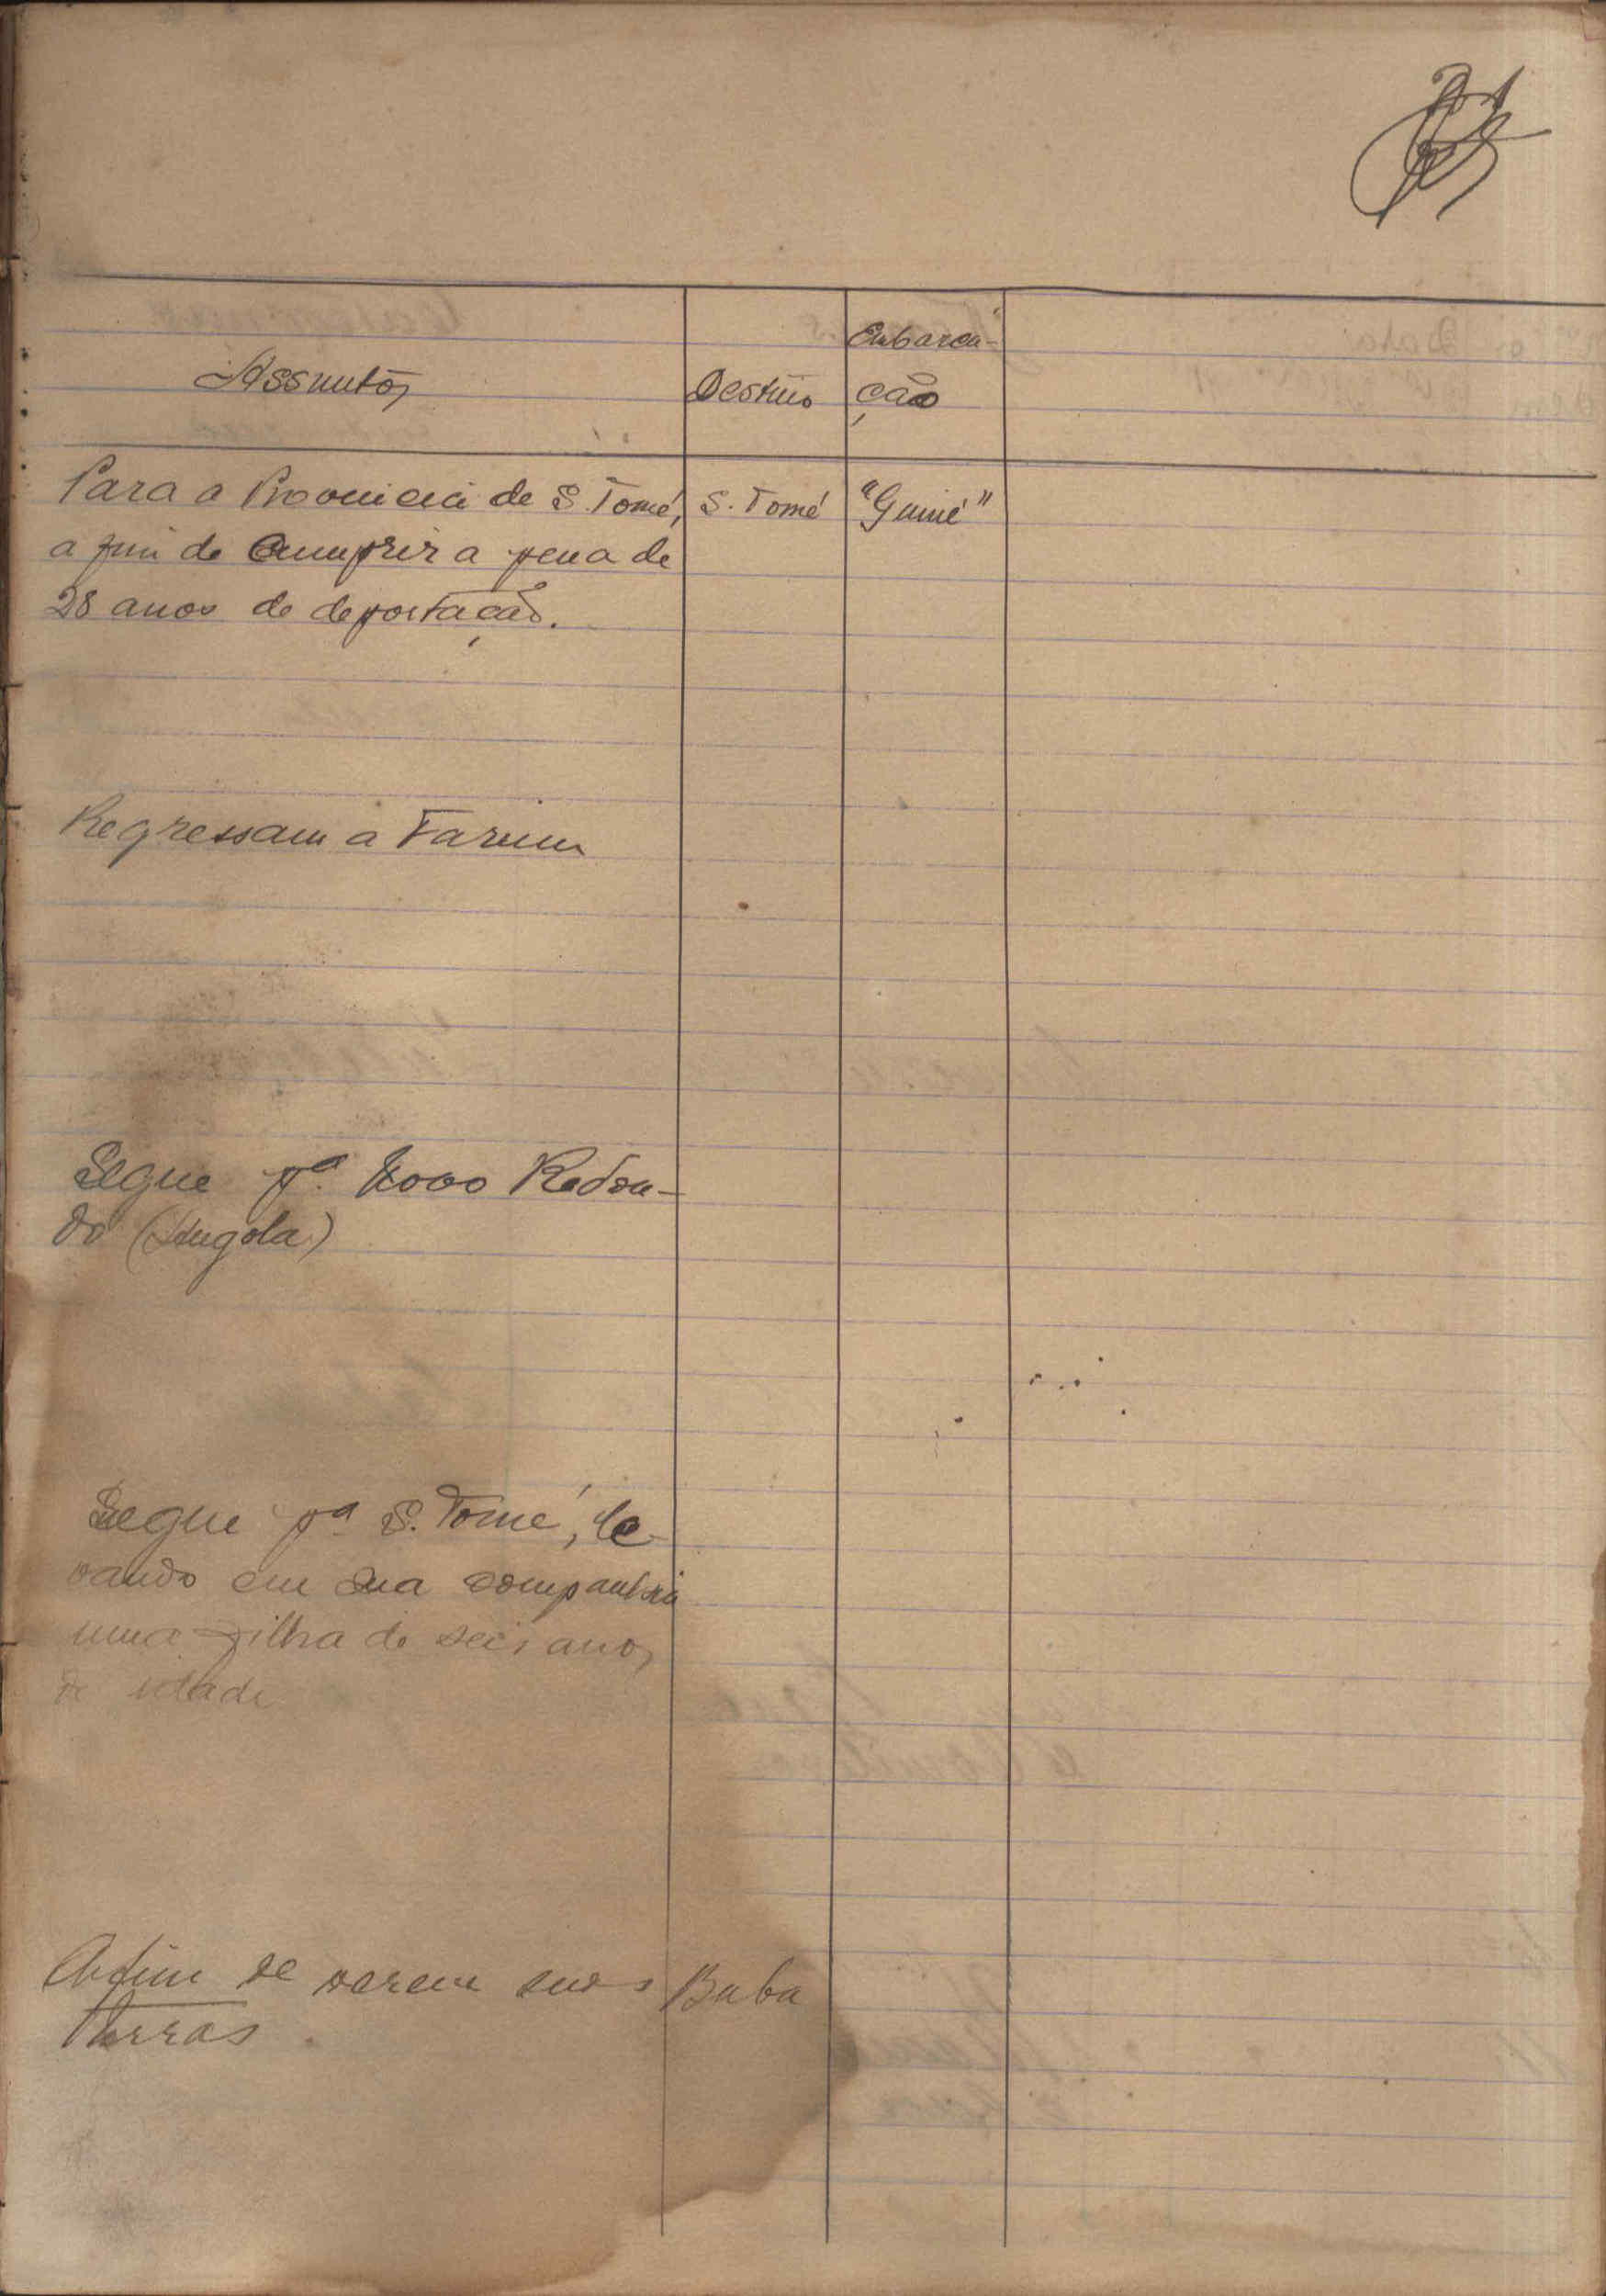 Assuntos
Destino
Embarca-
ção
Para a Provincia de S. Tomé,
a fim de cumprir a pena de
28 anos de deportação.
S. Tomé
"Guiné"
Regressam a Farim
Segue pª. Novo Redon-
do (Angola)
Segue pª S. Tomé, le-
vando em sua companhia
uma filha de seis anos
de idade
Afim de verem suas
terras
Buba